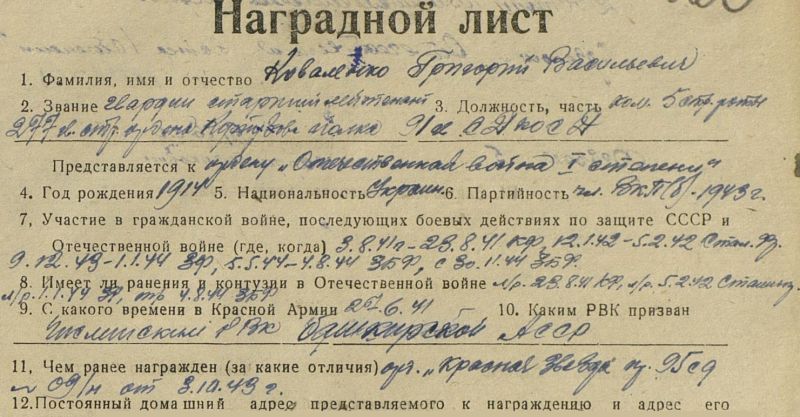 Наградной лист
1. Фамилия, имя и отчество Коваленко Григорий Васильевич
2. Звание гвардии старший лейтенант 3. Должность, часть ком. 5 стр. роты
277 гв. стр. ордена полка 91
Представляется к ордену „Отечественная война I степени"
4. Год рождения 1914 5. Национальность Украин. 6. Партийность чл. ВКП(б) - 1943 г.
7, Участие в гражданской войне, последующих боевых действиях по защите СССР и
Отечественной войне (где, когда) 3.8.41 - 23.8.41 12.1.42 - 5.2.42 Стал.
9.12.43 - 1.1.44 5.5.44 - 4.8.44 3БФ, с 30.11.44 3БФ
8. Имеет ли ранения и контузии в Отечественной войне л/р. 23.8.41 л/р. 5.2.42
л/р. 1.1.44 4.8.44 3БФ
9. С какого времени в Красной Армии 27.6.41 10. Каким РВК призван
РВК Башкирской АССР
11, Чем ранее награжден (за какие отличия) орд. „Красная Звезда пр. 95 сд
№ 09/н от 3.10.43 г.
12. Постоянный домашний адрес представляемого к награждению и адрес его